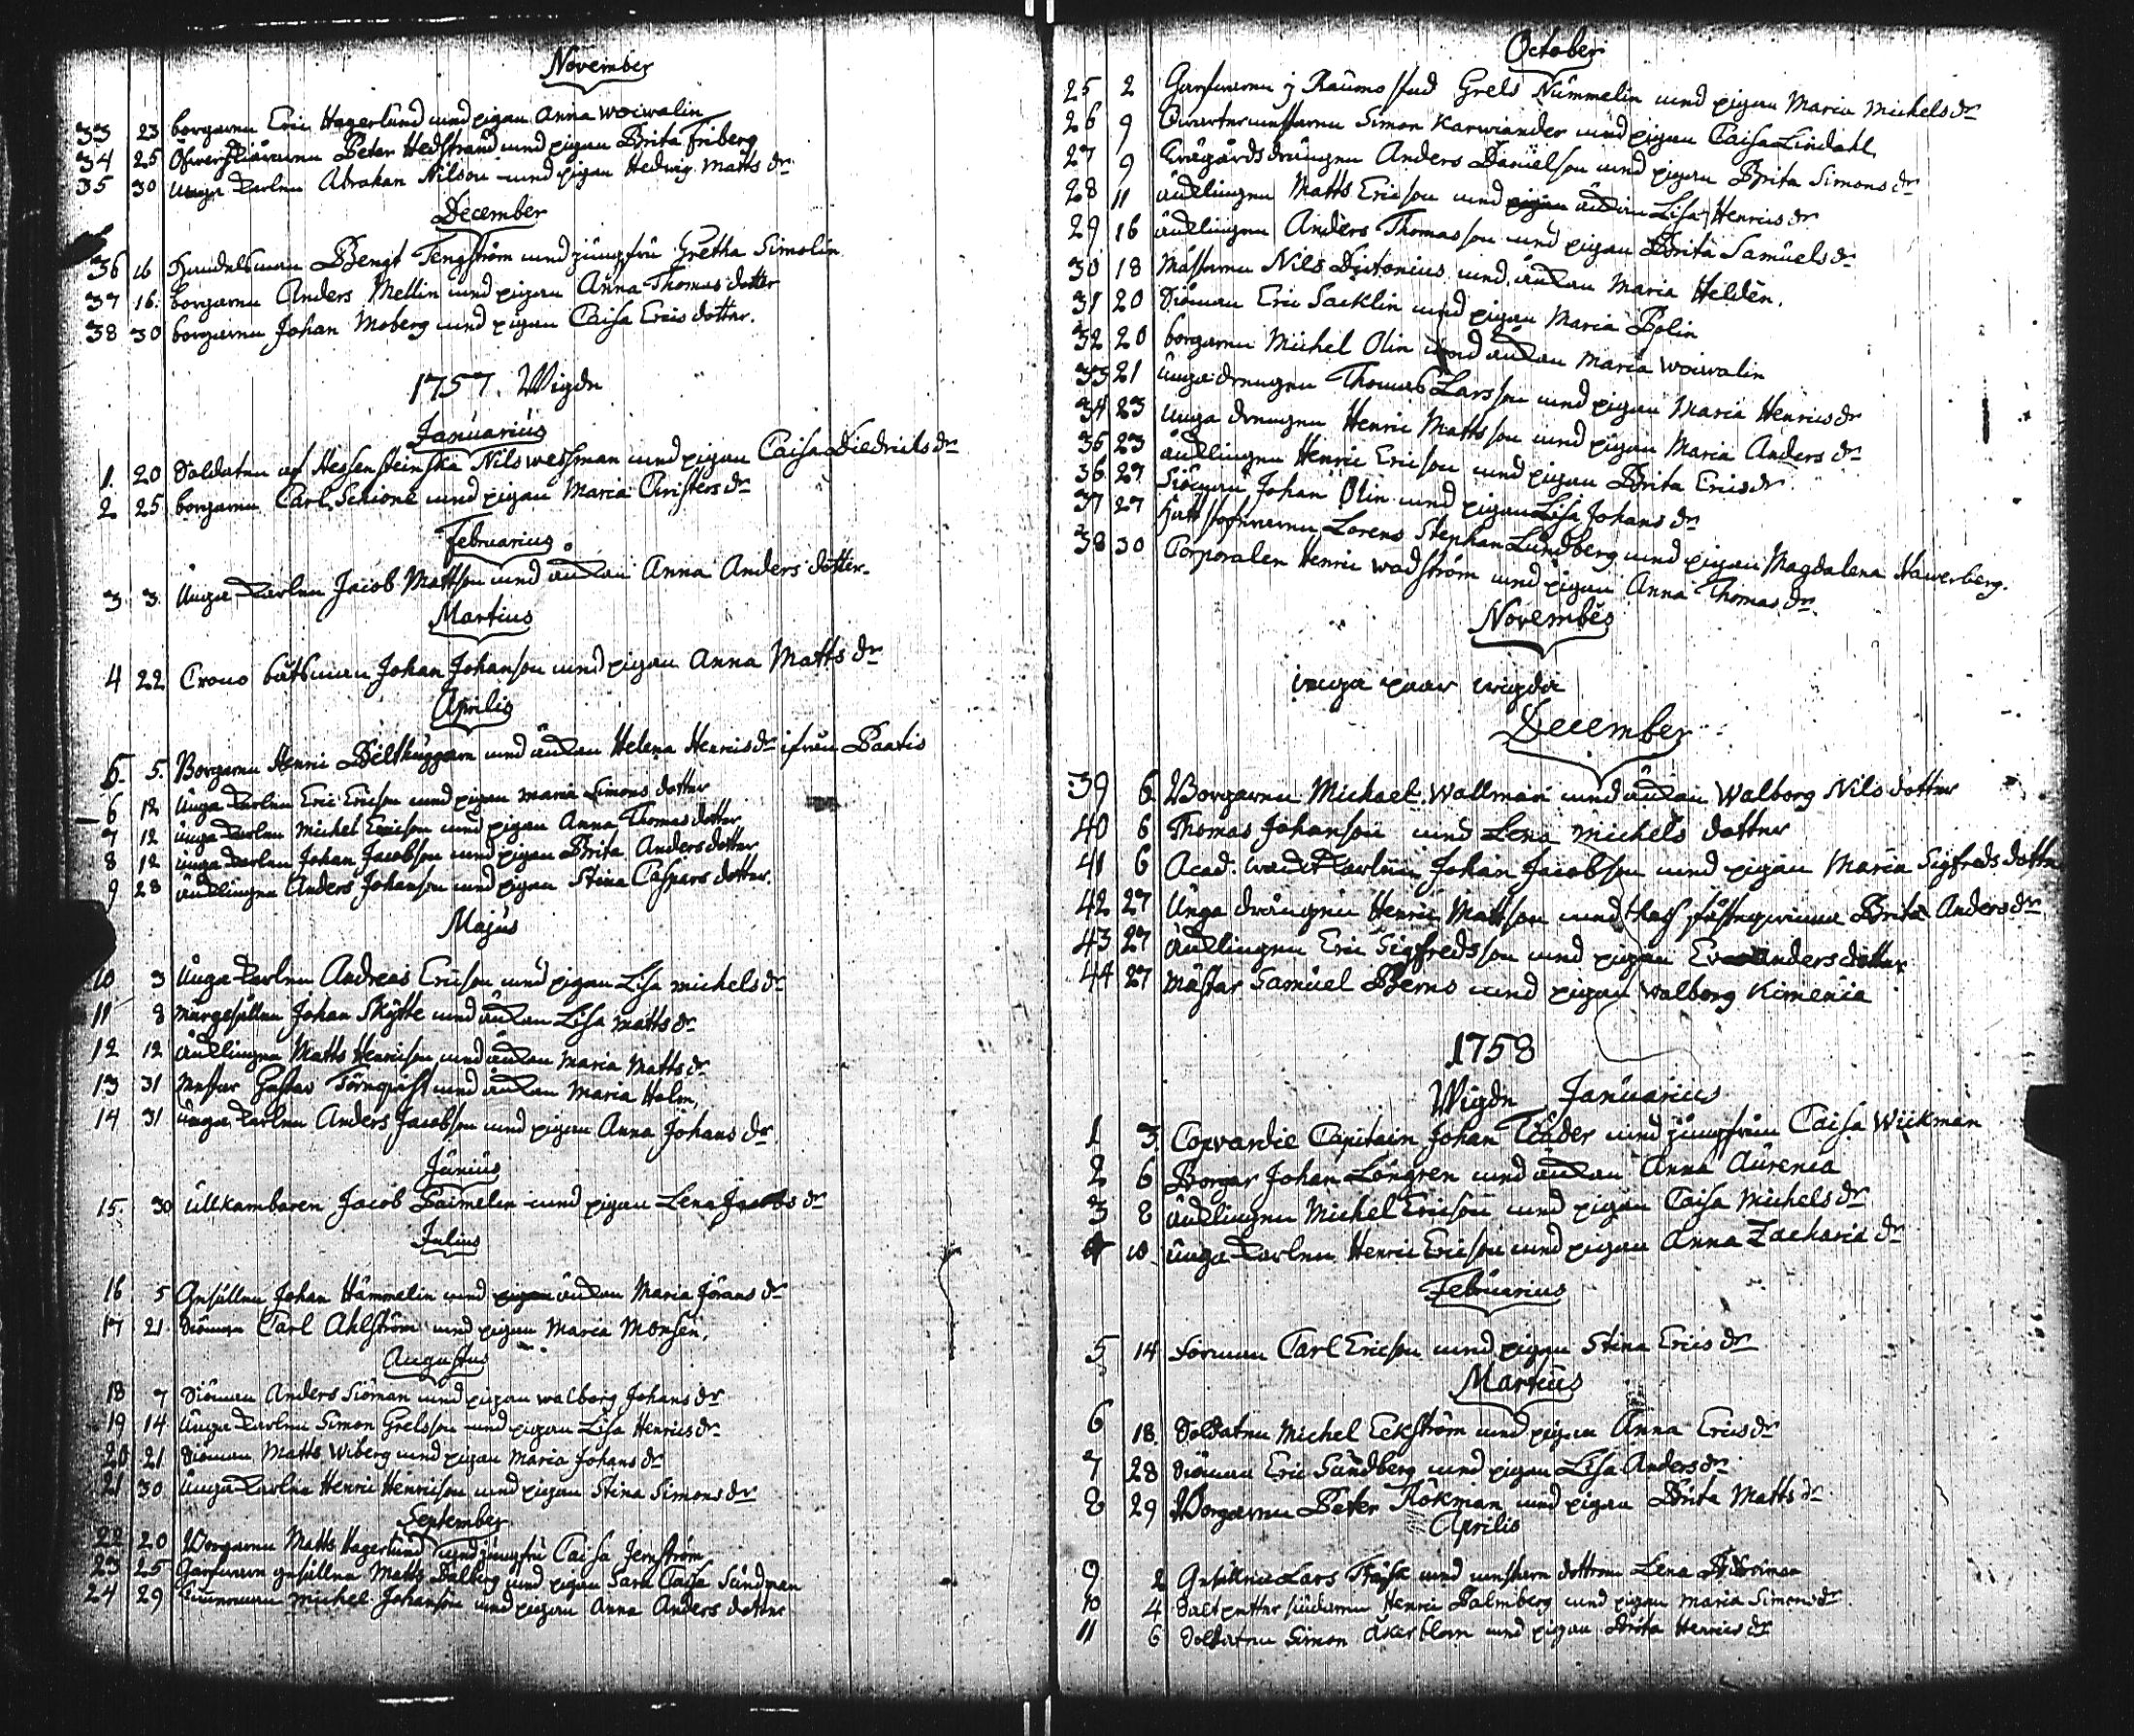 November
33 23 borgaren Eric Hagerlund med pigan Anna Woiwalin
34 25 Peter Hedstrand med pigan Brita Friberg
35 30 unga Karlen Abraham Nilson med pigan Hedwig Matts dr
December
36 16 Handelsman Bengt Tengström med jungfru Gretha Simolin
37 16. borgaren Anders Mellin med pigan Anna Thomas dotter
38 30 borgaren Johan Moberg med pigan Caisa Erics dotter.
1757. Wigde
Januarius
1. 20 Soldaten af Hessensteinska Nils Wessman med pigan Caisa Diedrichs dr
2 25 borgaren Carl Schione med pigan Maria Christers dr
Februarius.
3 3. Unga Karlen Jacob Mattson med änkan Anna Anders dotter.
Martius
4 22 Crono båtsman Johan Johanson med pigan Anna Matts dr
Aprilis
5. 5. Borgaren Henric Bälthuggare med änkan Helena Henrics dr ifrån Paavis
6 12 Unga Karlen Eric Ericson med pigan Maria Simons dotter
7 12 Unga Karlen Michel Ericson med pigan Anna Thomas dotter
8 12 unga Karlen Johan Jacobson med pigan Brita Anders dotter
9 28 änklingen Anders Johanson med pigan Stina Caspars dotter.
Majus
10 3 Unga Karlen Andreas Ericson med pigan Lisa Michels dr
11 8 murgesällen Johan Skytte med änkan Lisa Matts dr
12 12 änklingen Matts Henricson med änkan Maria Matts dr
13 31 Mestar Gustav Törnqvist med änkan Maria Holm,
14 31 Unga Karlen Anders Jacobson med pigan Anna Johans dr
Junius
15. 30 ullkambaren Jacob Paimelin med pigan Lena Jacobs dr
Julius
16 5 Gesällen Johan Hammelin med pigan änkan Maria Jörans dr
17 21. Siöman Carl Ahlström med pigan Maria Monsen,
Augustus
18 7 Siöman Anders Siöman med pigan Walborg Johans dr
19 14 Unga Karlen Simon Grelsson med pigan Lisa Henrics dr
20 21 Siöman Matts Wiberg med pigan Maria Johans dr
21 30 Unga Karlen Henric Henricson med pigan Stina Simons dr
September
22 20 Borgaren Matts Hagerlund med jungfru Caisa Jernström
23 25 Garfvare gesällen Matts Dalberg med pigan Sara Caisa Sundman
24 29 Timmerman Michel Johanson med pigan Anna Anders dotter
October
25 2 Garfvaren i Raumo stad Grels Nummelin med pigan Maria Michels dr
26 9 Qwartermästaren Simon Karwiander med pigan Caisa Lindahl
27 9 drängen Anders Danielson med pigan Brita Simons dr
28 11 änklingen Matts Ericson med pigan änkan Lisa Henrics dr
29 16 änklingen Anders Thomasson med pigan Brita Samuels dr
30 18 Mästaren Nils Dyitonius med änkan Maria Helden.
31 20 Siöman Eric Sacklin med pigan Maria Polin
32 20 borgaren Michel Olin med änkan Maria Woiwalin
33 21 Unga drengen Thomas Larsson med pigan Maria Henrics dr
34 23 Unga drengen Henric Mattsson med pigan Maria Anders dr
35 23 änklingen Henric Ericson med pigan Brita Erics dr
36 27 Siöman Johan Olin med pigan Lisa Johans dr
37 27 Lorens Stephan Lundberg med pigan Magdalena Hawerberg.
38 30 Corporalen Henric Wadström med pigan Anna Thomas dr
November
inga paar wigda
December
39 6 Borgaren Michael Wallman med änkan Walborg Nils dotter
40 6 Thomas Johanson med Lena Michels dotter
41 6 Acad. wacktkarlen Johan Jacobson med pigan Maria Sigfreds dotter
42 27 Unga drängen Henric Mattson med thess fästeqwinna Brita Anders dr
43 27 änklingen Eric Sigfredsson med pigan Eva Anders dotter
44 27 Mästar Samuel Berns med pigan Walborg Kimenia
1758
Wigde Januarius
1 3. Copvardie Capitain Johan Tender med jungfrun Caisa Wickman
2 6 Borgar Johan Löngren med änkan Anna Aurenia
3 8 änklingen Michel Ericson med pigan Caisa Michels dr
4 10 unga Karlen Henric Ericson med pigan Anna Zacharia dr
Februarius
5 14 Forman Carl Ericson med pigan Stina Erics dr
Martius
6 18. Soldaten Michel Eckström med pigan Anna Erics dr
7 28 Siöman Eric Sundberg med pigan Lisa Anders dr
8 29 Borgaren Peter Rökman med pigan Brita Matts dr
Aprilis
9 2 Gesällen Lars med dottren Lena
10 4 Saltpetter siudaren Henric Palmberg med pigan Maria Simons dr
11 6 Soldaten Simon Åkerblom med pigan Brita Henrics dr